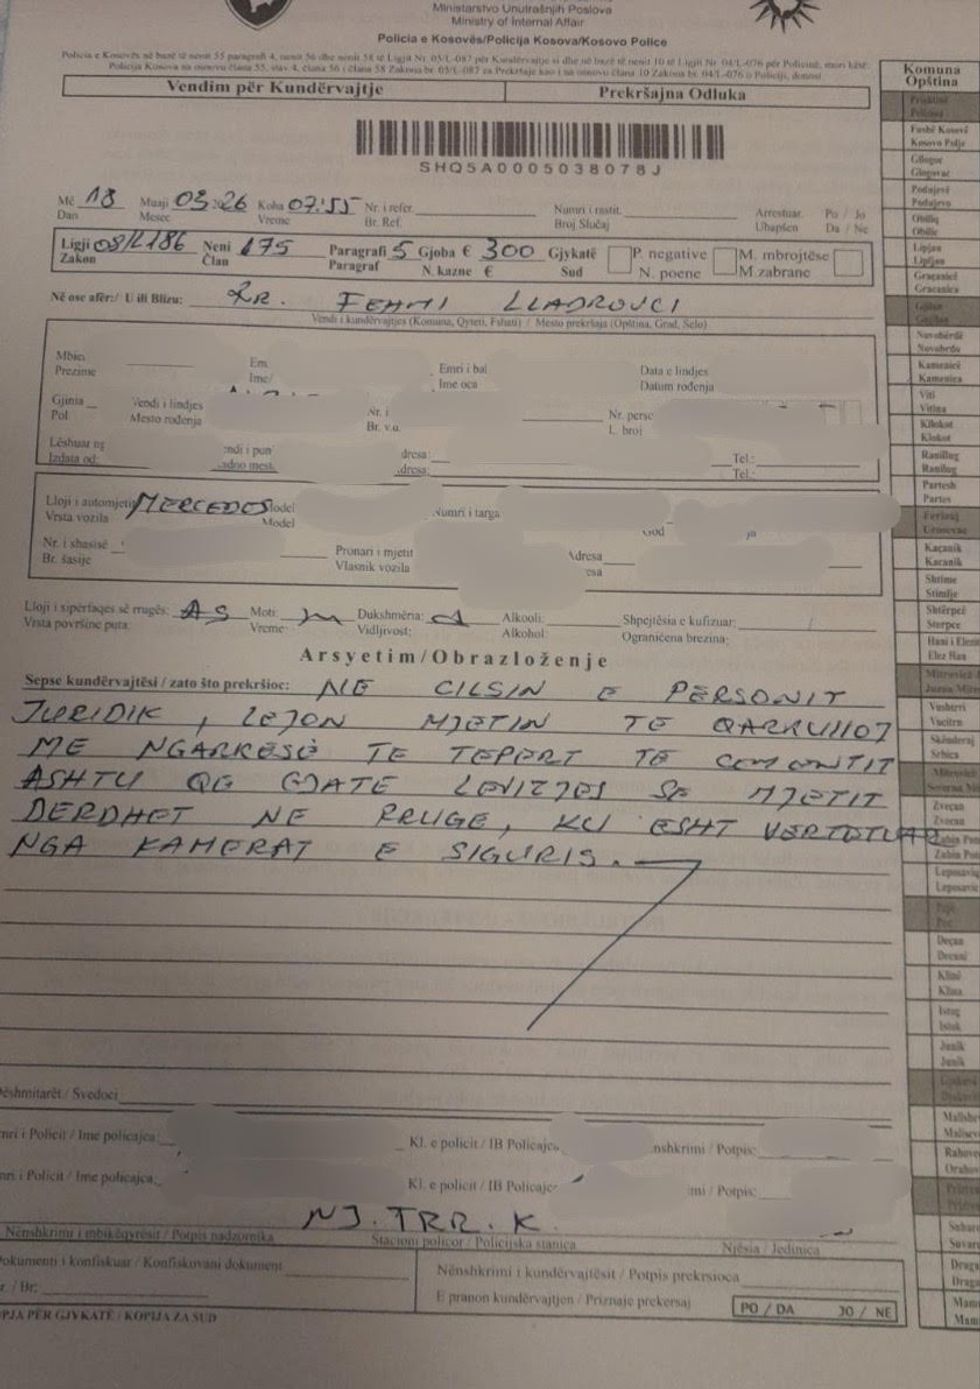 Ministarstvo Unutrašnjih Poslova
Ministry of Internal Affair
Policia e Kosovës/Policija Kosova/Kosovo Police
Policia e Kosovës në bazë të nenit 55 paragrafi 4, nenit 56 dhe nenit 58 të Ligjit Nr. 05/L-087 për Kundërvajtje si dhe në bazë të nenit 10 të Ligjit Nr. 04/L-076 për Policinë, merr këtë:
Policija Kosova na osnovu člana 55, stav 4, člana 56 i člana 58 Zakona br. 05/L-087 za Prekršaje kao i na osnovu člana 10 Zakona br. 04/L-076 o Policiji, donosi
Vendim për Kundërvajtje Prekršajna Odluka
SHQ5A0005038078J
Më 18 Muaji 03 2026 Koha 07:55 Nr. i refer. Numri i rastit. Arrestuar Po / Jo
Dan Mesec Vreme Br. Ref. Broj Slučaj Uhapšen Da / Ne
Ligji 08/L186 Neni 175 Paragrafi 5 Gjoba € 300 Gjykatë P. negative M. mbrojtëse
Zakon Član Paragraf N. kazne € Sud N. poene M zabrane
Në ose afër:/ U ili Blizu: RR. FEHMI LLADROVCI
Vendi i kundërvajtjes (Komuna, Qyteti, Fshati) / Mesto prekršaja (Opština, Grad, Selo)
Em Emri i bal Data e lindjes
Prezime Ime/ Ime oca Datum rođenja
Gjinia Vendi i lindjes Nr. i Nr. perso
Pol Mesto rođenja Br. v.a. L. broj
Lëshuar ng Tel.:
Izdata od: Tel.:
Lloji i automjetit MERCEDES Model Numri i targa
Vrsta vozila Model
Nr. i shasisë Pronari i mjetit Adresa
Br. šasije Vlasnik vozila
Lloji i sipërfaqes së rrugës: AS Moti: Dukshmëria: Alkooli: Shpejtësia e kufizuar:
Vrsta površine puta: Vreme: Vidljivost: Alkohol: Ograničena brezina:
Arsyetim/Obrazloženje
Sepse kundërvajtësi / zato što prekršioc: NE CILSIN E PERSONIT
JURIDIK, LEJON MJETIN TE QARKULLOJ
ME NGARKESË TE TEPERT TË
ASHTU QE GJATE LEVIZJES SE MJETIT
DERDHET NE RRUGE, KU ESHT VERTETUAR
NGA KAMERAT E SIGURIS.
Dëshmitarët / Svedoci
Emri i Policit / Ime policajca: Kl. e policit / IB Policajca Nënshkrimi / Potpis:
Emri i Policit / Ime policajca Kl. e policit / IB Policajc / Potpis:
NJ. TRR. K.
Nënshkrimi i mbikëqyrësit / Potpis nadzornika Stacioni policor / Policijska stanica Njësia / Jedinica
Dokumenti i konfiskuar / Konfiskovani dokument Nënshkrimi i kundërvajtësit / Potpis prekrsioca
/ Br: E pranon kundërvajtjen / Priznaje prekersaj PO / DA JO / NE
KOPJA PËR GJYKATË / KOPIJA ZA SUD
Komuna
Opština
Fushë Kosovë
Kosovo Polje
Gllogoc
Glogovac
Podujevë
Podujevo
Obiliq
Obilic
Lipjan
Lipljan
Graçanicë
Gracanica
Novobërdë
Novobrdo
Kamenicë
Kamenica
Viti
Vitina
Kllokot
Klokot
Ranillug
Ranilug
Partesh
Partes
Ferizaj
Urosevac
Kaçanik
Kacanik
Shtime
Stimlje
Shtërpcë
Sterpce
Hani i Elezit
Elez Han
Vushtrri
Vucitrn
Skënderaj
Srbica
Zveçan
Zvecan
Zubin Potok
Leposaviq
Leposavic
Deçan
Decani
Klinë
Klina
Istog
Istok
Junik
Junik